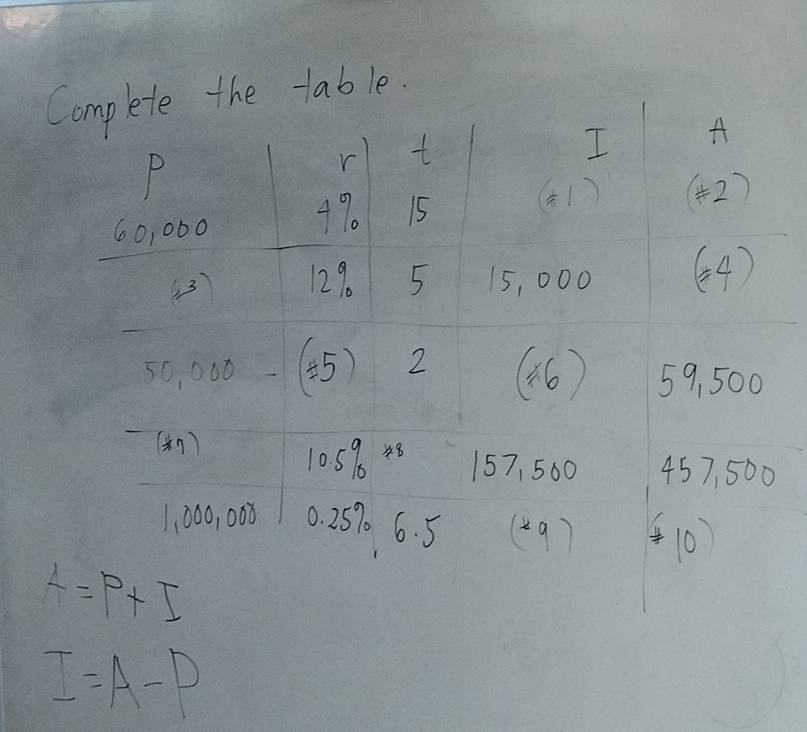 Complete the table.
P r t I A
60,000 4% 15 (#1) (#2)
(#3) 12% 5 15,000 (#4)
50,000 - (#5) 2 (#6) 59,500
(#7) 10.5% #8 157,500 457,500
1,000,000 0.25% 6.5 (#9) (#10)
A = P + I
I = A - P